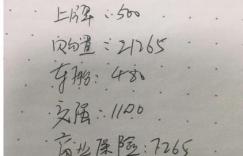 上牌:500
购置:21265
车船:480
交强:1100
商业保险:7265